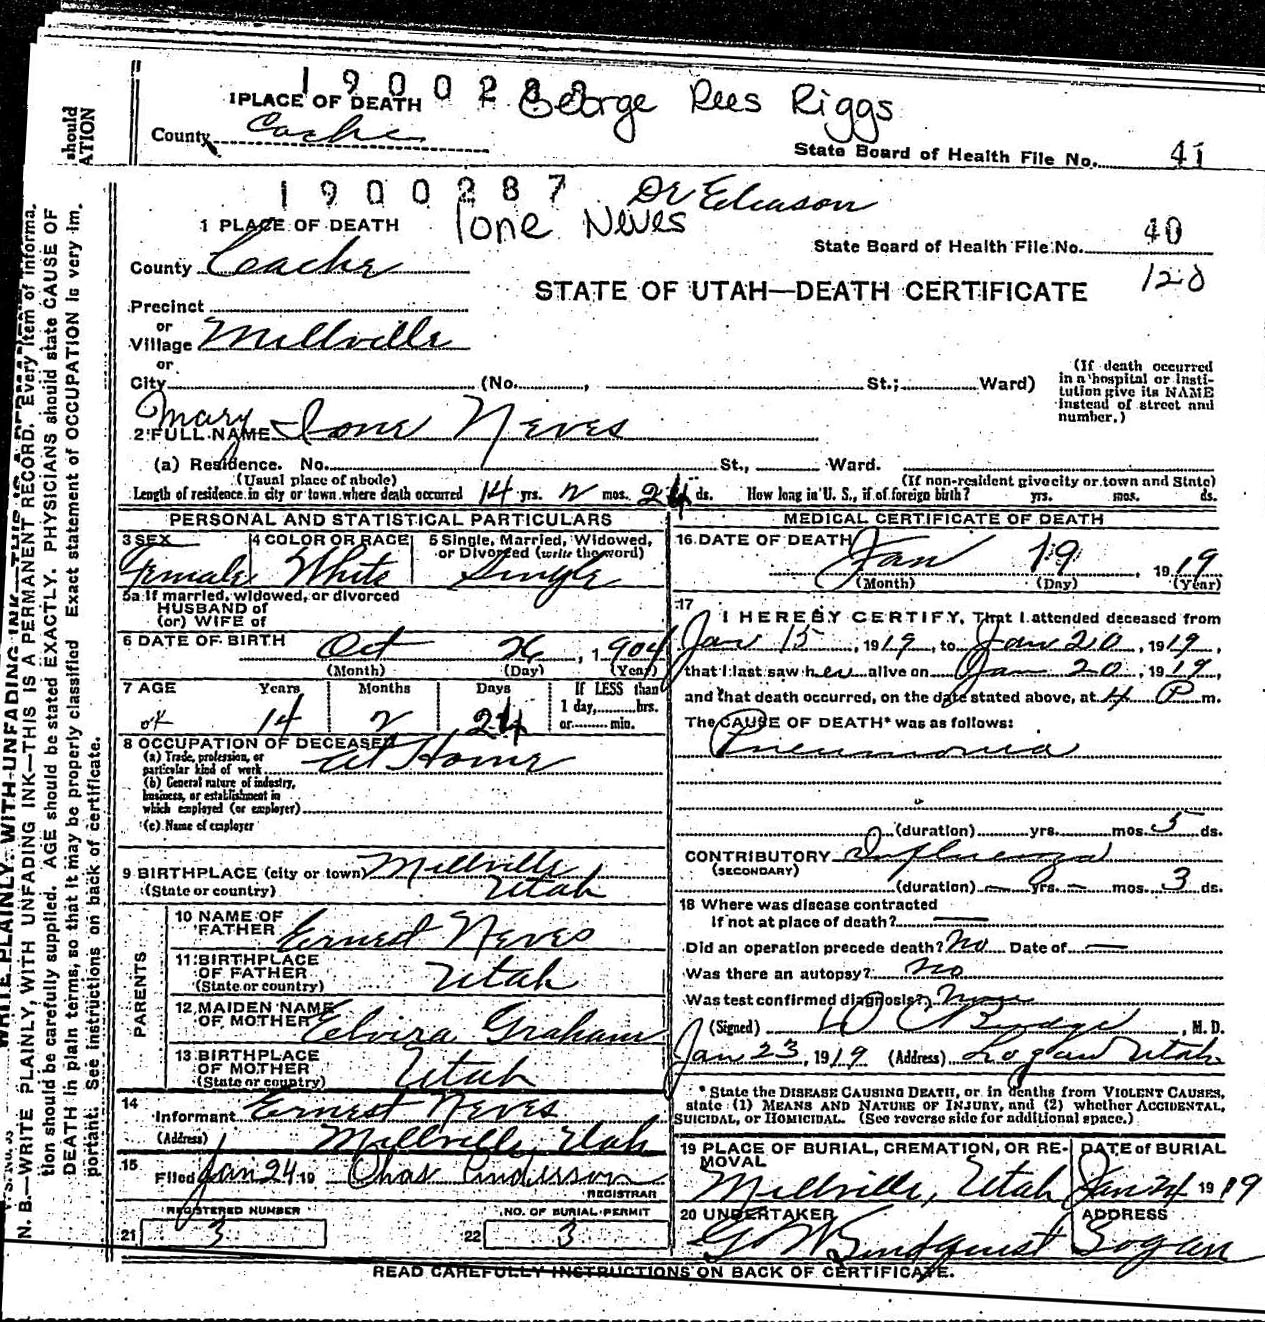 1 9 0 0 2 8
1PLACE OF DEATH George Rees Riggs
County Cache
State Board of Health File No. 41
should
ATION
1 9 0 0 2 8 7 Dr Eliason
1 PLACE OF DEATH Ione Neves
State Board of Health File No. 40
County Cache
120
STATE OF UTAH—DEATH CERTIFICATE
Precinct
or
Village Millville
or
City (No. , St.; Ward)
(If death occurred
in a hospital or Insti-
tution give its NAME
instead of street and
number.)
Mary
2 FULL NAME Ione Neves
(a) Residence. No. St., Ward.
(Usual place of abode) (If non-resident give city or town and State)
Length of residence in city or town where death occurred 14 yrs. 2 mos. 24 ds. How long in U. S., if of foreign birth? yrs. mos. ds.
PERSONAL AND STATISTICAL PARTICULARS
3 SEX 4 COLOR OR RACE 5 Single, Married, Widowed,
or Divorced (write the word)
Female White Single
5a If married, widowed, or divorced
HUSBAND of
(or) WIFE of
6 DATE OF BIRTH Oct 26, 1904
(Month) (Day) (Year)
7 AGE Years Months Days If LESS than
1 day, hrs.
or min.
14 2 24
8 OCCUPATION OF DECEASED
(a) Trade, profession, or
particular kind of work at Home
(b) General nature of industry,
business, or establishment in
which employed (or employer)
(c) Name of employer
9 BIRTHPLACE (city or town) Millville
(State or country) Utah
PARENTS
10 NAME OF
FATHER Ernest Neves
11 BIRTHPLACE
OF FATHER
(State or country) Utah
12 MAIDEN NAME
OF MOTHER Elvira Graham
13 BIRTHPLACE
OF MOTHER
(State or country) Utah
14
Informant Ernest Neves
(Address) Millville, Utah
15
Filed Jan 24 19 Chas Anderson
REGISTRAR
REGISTERED NUMBER NO. OF BURIAL PERMIT
21 3 22 3
MEDICAL CERTIFICATE OF DEATH
16 DATE OF DEATH Jan 19, 1919
(Month) (Day) (Year)
17
I HEREBY CERTIFY, That I attended deceased from
Jan 15, 1919, to Jan 20, 1919,
that I last saw her alive on Jan 20, 1919,
and that death occurred, on the date stated above, at 4 P m.
The CAUSE OF DEATH* was as follows:
Pneumonia
(duration) yrs. mos. 5 ds.
CONTRIBUTORY Influenza
(SECONDARY)
(duration) — yrs. — mos. 3 ds.
18 Where was disease contracted
If not at place of death? —
Did an operation precede death? No Date of —
Was there an autopsy? no
Was test confirmed diagnosis?
(Signed) D C Budge, M. D.
Jan 23, 1919 (Address) Logan Utah
* State the DISEASE CAUSING DEATH, or in deaths from VIOLENT CAUSES,
state (1) MEANS AND NATURE OF INJURY, and (2) whether ACCIDENTAL,
SUICIDAL, or HOMICIDAL. (See reverse side for additional space.)
19 PLACE OF BURIAL, CREMATION, OR RE-
MOVAL
Millville, Utah
DATE of BURIAL
Jan 24 1919
20 UNDERTAKER ADDRESS
G W Lindquist Logan
READ CAREFULLY INSTRUCTIONS ON BACK OF CERTIFICATE.
N. B.—WRITE PLAINLY, WITH UNFADING INK—THIS IS A PERMANENT RECORD. Every item of informa-
tion should be carefully supplied. AGE should be stated EXACTLY. PHYSICIANS should state CAUSE OF
DEATH in plain terms, so that it may be properly classified Exact statement of OCCUPATION is very im-
portant. See instructions on back of certificate.